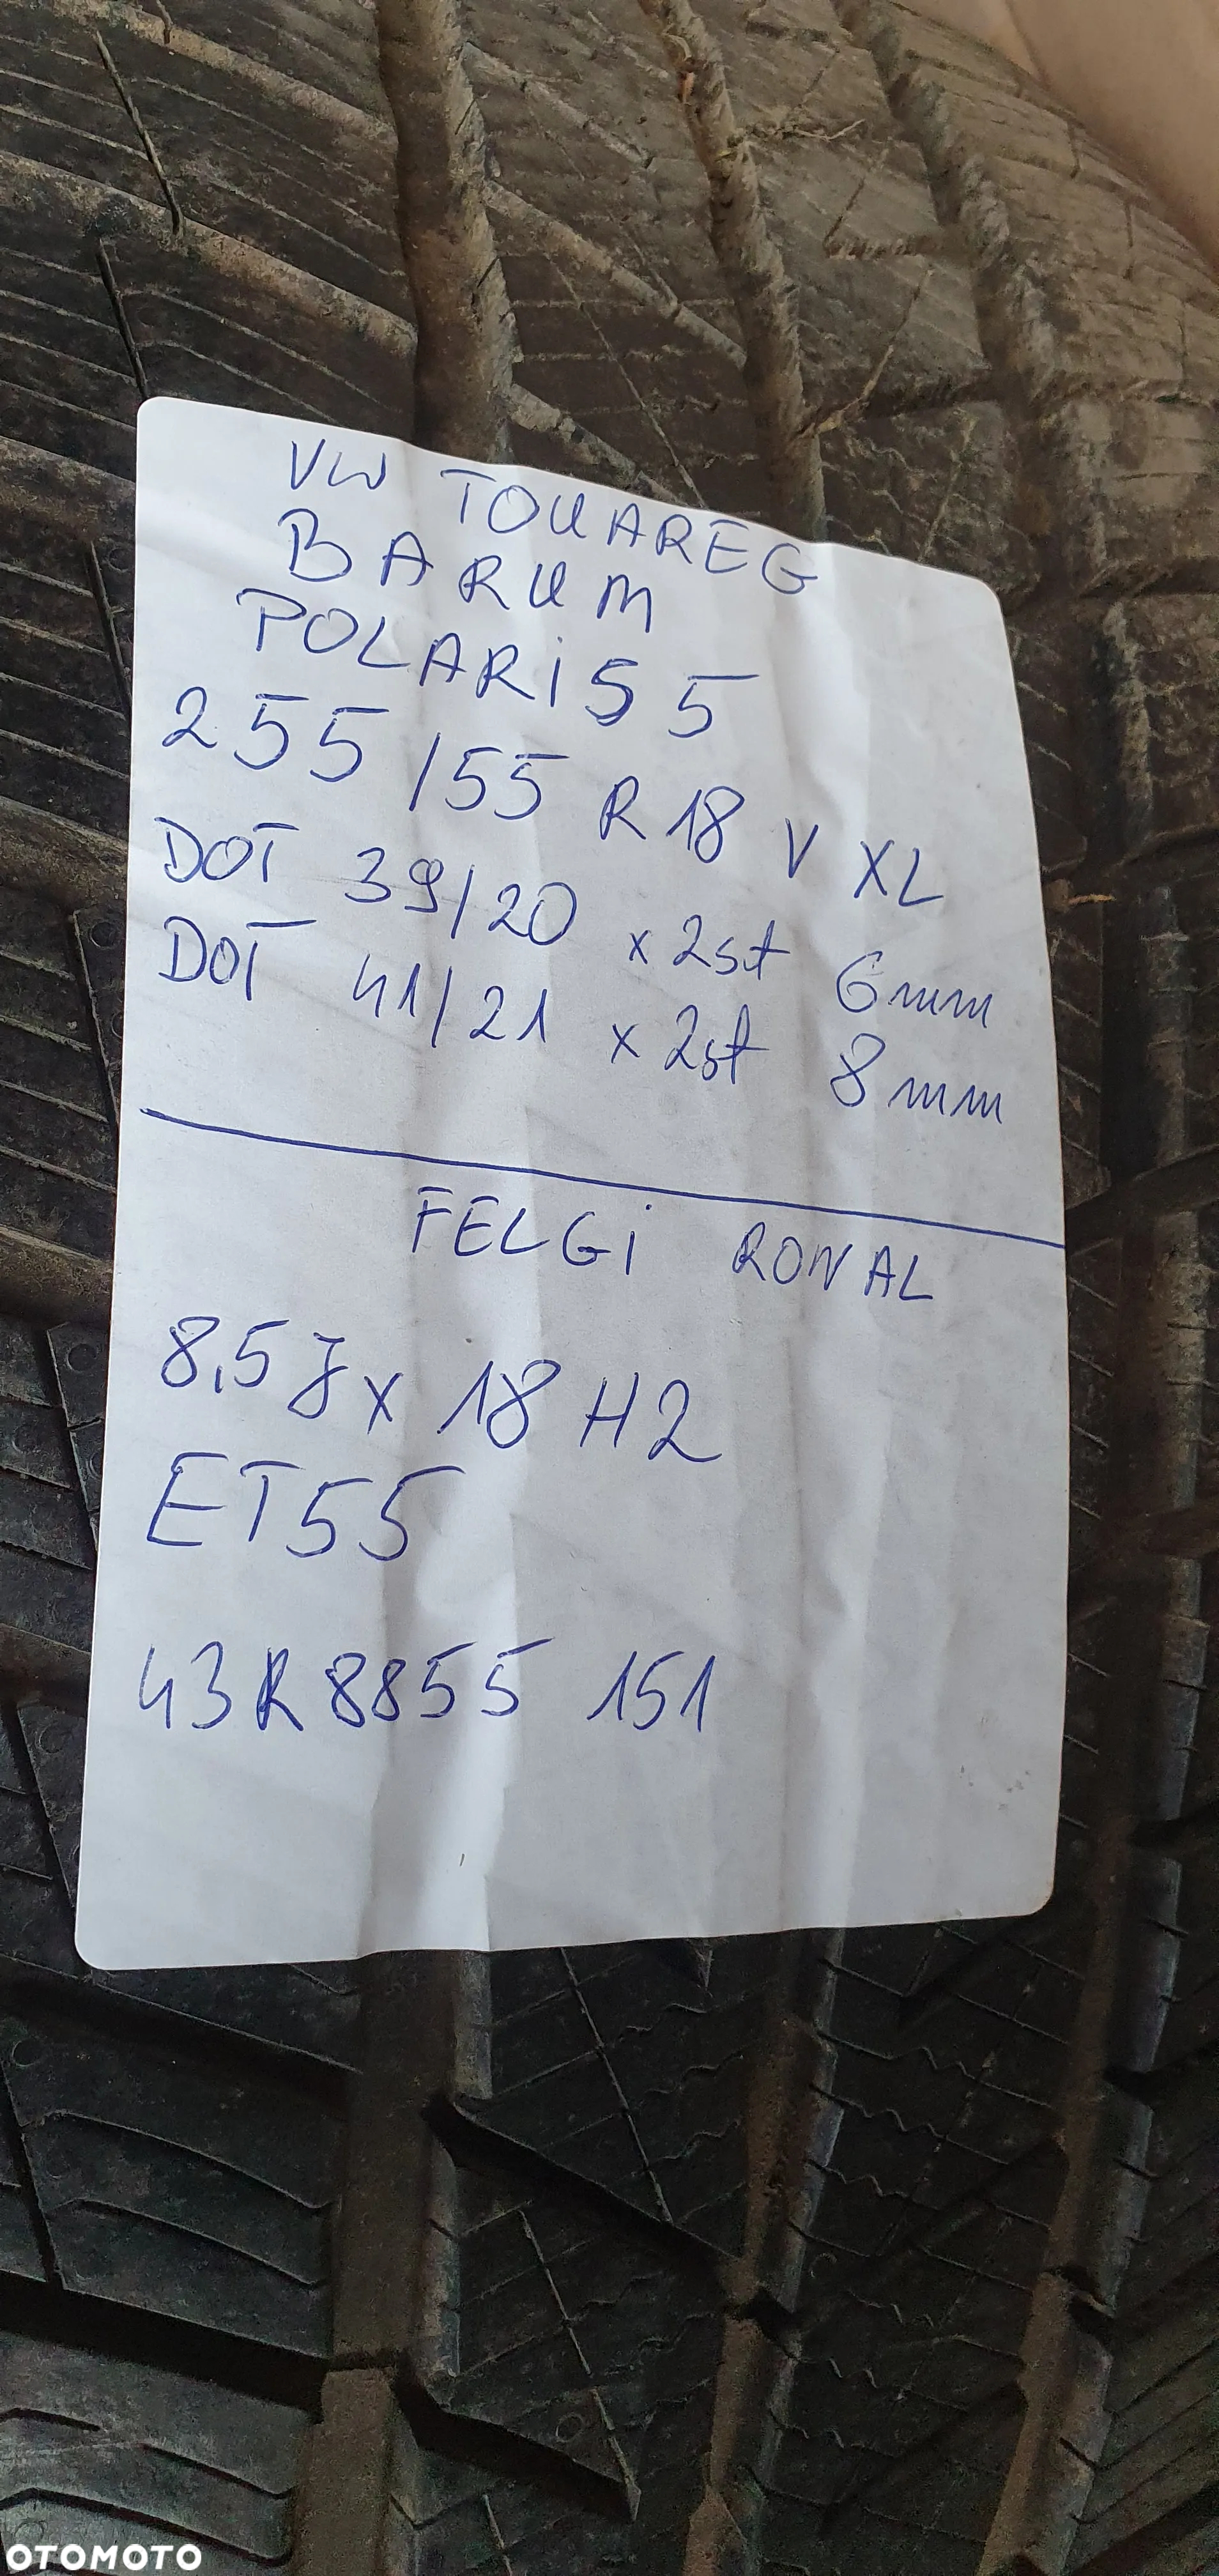 VW TOUAREG
BARUM
POLARIS 5
255/55 R18 V XL
DOT 39/20 x 2szt 6mm
DOT 41/21 x 2szt 8mm
FELGI RONAL
8,5 J x 18 H2
ET55
43R8855 151
OTOMOTO